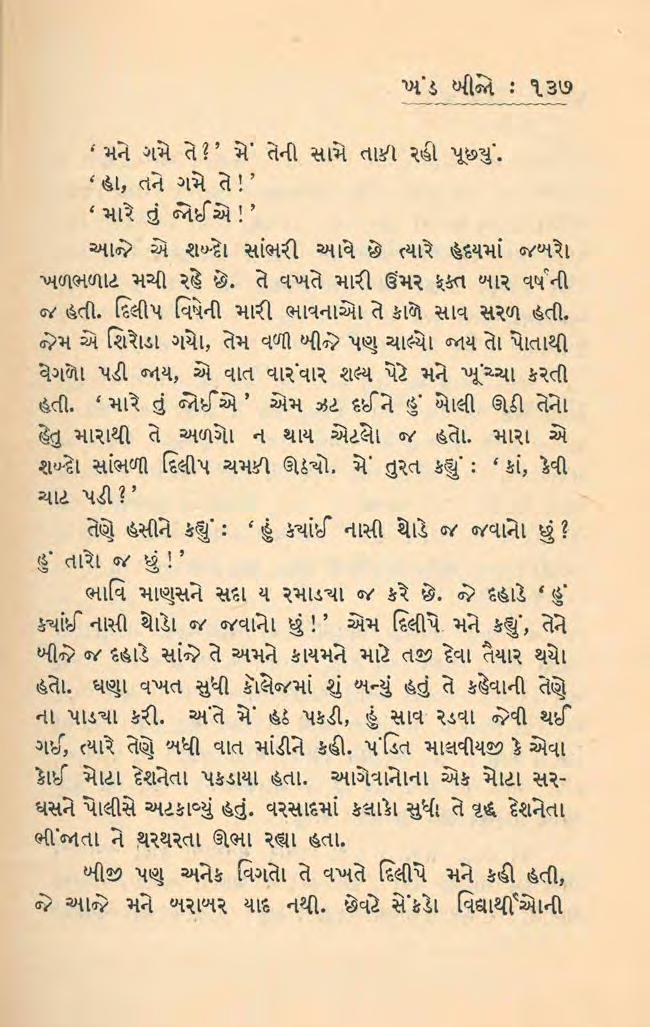 ખંડ બીજો : ૧૩૭
‘ મને ગમે તે?’ મેં તેની સામે તાકી રહી પૂછ્યું.
‘ હા, તને ગમે તે!’
‘ મારે તું જોઈએ!’
આજે એ શબ્દો સાંભરી આવે છે ત્યારે હૃદયમાં જબરો
ખળભળાટ મચી રહે છે. તે વખતે મારી ઉંમર ફક્ત બાર વર્ષની
જ હતી. દિલીપ વિષેની મારી ભાવનાઓ તે કાળે સાવ સરળ હતી.
જેમ એ શિરોડા ગયો, તેમ વળી બીજે પણ ચાલ્યો જાય તો પોતાથી
વેગળો પડી જાય, એ વાત વારંવાર શલ્ય પેઠે મને ખૂંચ્યા કરતી
હતી. ‘ મારે તું જોઈએ ’ એમ ઝટ દઈને હું બોલી ઊઠી તેનો
હેતુ મારાથી તે અળગો ન થાય એટલો જ હતો. મારા એ
શબ્દો સાંભળી દિલીપ ચમકી ઊઠ્યો. મેં તુરત કહ્યું : ‘ કાં, કેવી
ચાટ પડી?’
તેણે હસીને કહ્યું : ‘ હું ક્યાંઈ નાસી થોડો જ જવાનો છું?
હું તારો જ છું!’
ભાવિ માણસને સદા ય રમાડ્યા જ કરે છે. જે દહાડે ‘ હું
ક્યાંઈ નાસી થોડો જ જવાનો છું!’ એમ દિલીપે મને કહ્યું, તેને
બીજે જ દહાડે સાંજે તે અમને કાયમને માટે તજી દેવા તૈયાર થયો
હતો. ઘણા વખત સુધી કૉલેજમાં શું બન્યું હતું તે કહેવાની તેણે
ના પાડ્યા કરી. અંતે મેં હઠ પકડી, હું સાવ રડવા જેવી થઈ
ગઈ, ત્યારે તેણે બધી વાત માંડીને કહી. પંડિત માલવીયજી કે એવા
કોઈ મોટા દેશનેતા પકડાયા હતા. આગેવાનોના એક મોટા સર-
ઘસને પોલીસે અટકાવ્યું હતું. વરસાદમાં કલાકો સુધી તે વૃદ્ધ દેશનેતા
ભીંજાતા ને થરથરતા ઊભા રહ્યા હતા.
બીજી પણ અનેક વિગતો તે વખતે દિલીપે મને કહી હતી,
જે આજે મને બરાબર યાદ નથી. છેવટે સેંકડો વિદ્યાર્થીઓની